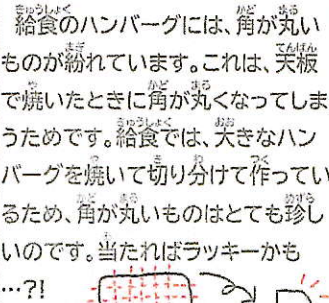 給食のハンバーグには、角が丸い
ものが紛れています。これは、天板
で焼いたときに角が丸くなってしま
うためです。給食では、大きなハン
バーグを焼いて切り分けて作ってい
るため、角が丸いものはとても珍し
いのです。当たればラッキーかも
…?!